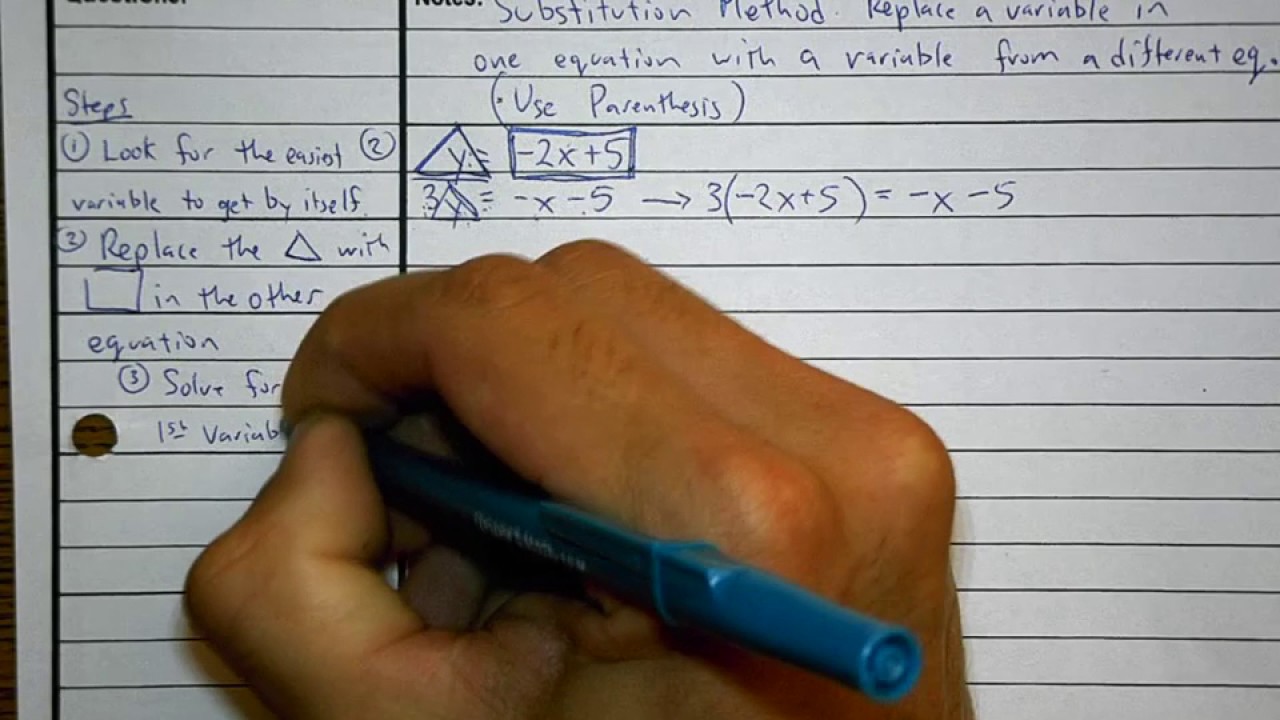 Questions:
Notes: Substitution Method. Replace a variable in
one equation with a variable from a different eq.
(· Use Parenthesis)
Steps
① Look for the easist
variable to get by itself.
② Replace the △ with
□ in the other
equation
③ Solve for
1st Variab
② y = -2x+5
3y = -x-5 → 3(-2x+5) = -x-5